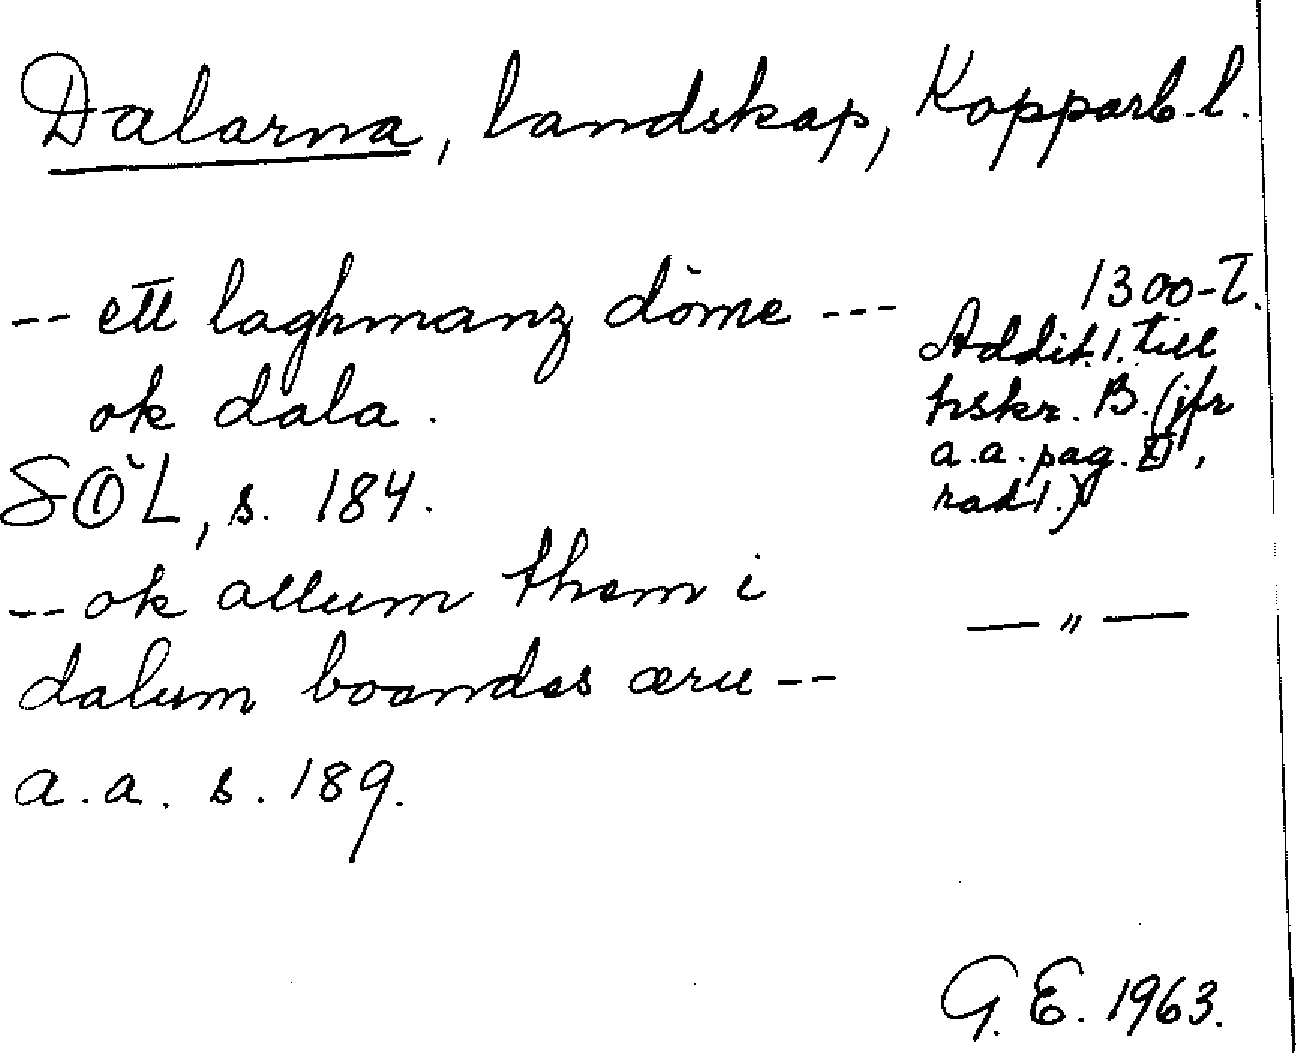 Dalarna, landskap, Kopparb. l.
-- ett laghmanz döme --- 1300-T.
ok dala. Addit. 1. till
hskr. B. (jfr
a.a. pag. II,
rad 1.)
SÖL, s. 184.
-- ok allum them i
dalum boandes æru -- — „ —
a.a. s. 189.
G. E. 1963.